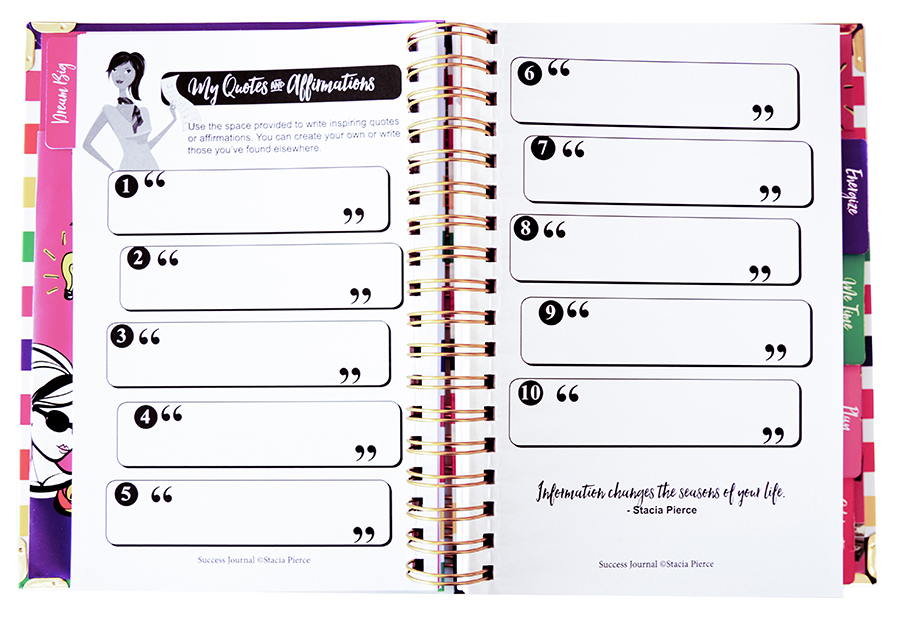 Dream Big
My Quotes AND Affirmations
Use the space provided to write inspiring quotes
or affirmations. You can create your own or write
those you've found elsewhere.
1 “ ”
2 “ ”
3 “ ”
4 “ ”
5 “ ”
Success Journal ©Stacia Pierce
6 “ ”
7 “ ”
8 “ ”
9 “ ”
10 “ ”
Information changes the seasons of your life.
- Stacia Pierce
Success Journal ©Stacia Pierce
Energize
Me Time
Plan